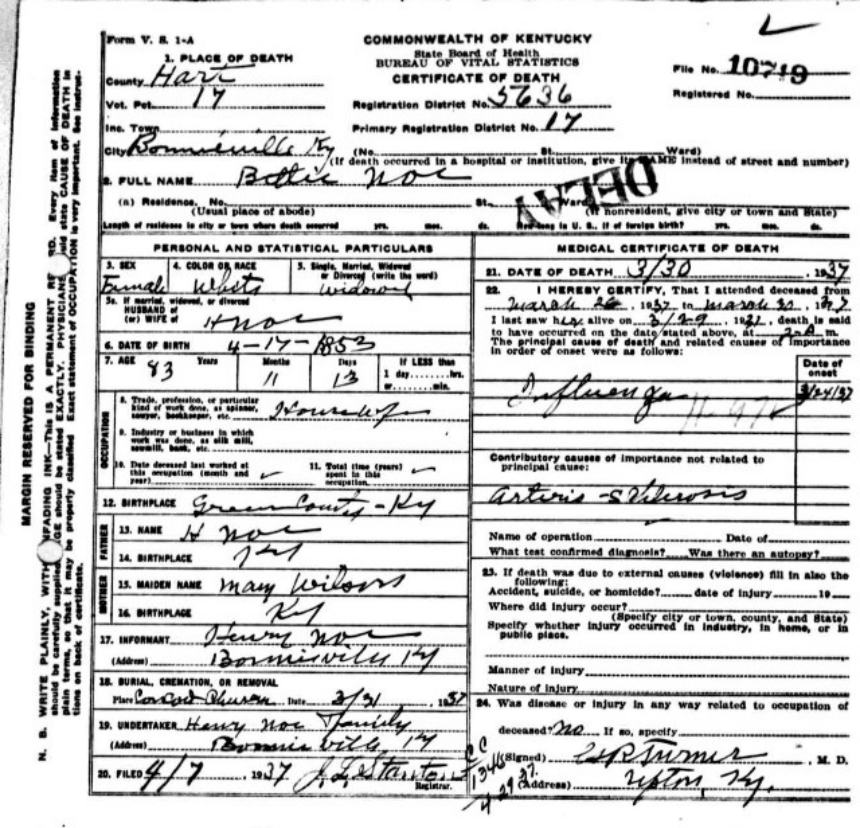 Form V. S. 1-A
COMMONWEALTH OF KENTUCKY
State Board of Health
BUREAU OF VITAL STATISTICS
CERTIFICATE OF DEATH
File No. 10719
Registered No.
1. PLACE OF DEATH
County Hart
Vot. Pct. 17
Registration District No. 5636
Inc. Town
Primary Registration District No. 17
City Bonnieville Ky (No. St. Ward)
(If death occurred in a hospital or institution, give its NAME instead of street and number)
2. FULL NAME Bettie Noe
DELAY
(a) Residence. No. St. Ward
(Usual place of abode) (If nonresident, give city or town and State)
Length of residence in city or town where death occurred yrs. mos. ds. How long in U. S., if of foreign birth? yrs. mos. ds.
PERSONAL AND STATISTICAL PARTICULARS
3. SEX 4. COLOR OR RACE 5. Single, Married, Widowed or Divorced (write the word)
Female White Widowed
5a. If married, widowed, or divorced
HUSBAND of
(or) WIFE of H Noe
6. DATE OF BIRTH 4-17-1853
7. AGE 83 Years Months 11 Days 13 If LESS than
1 day hrs.
or min.
OCCUPATION
8. Trade, profession, or particular
kind of work done, as spinner,
sawyer, bookkeeper, etc. Housewife
9. Industry or business in which
work was done, as silk mill,
sawmill, bank, etc.
10. Date deceased last worked at
this occupation (month and
year)
11. Total time (years)
spent in this
occupation
12. BIRTHPLACE Green County - Ky
FATHER
13. NAME H Noe
14. BIRTHPLACE Ky
MOTHER
15. MAIDEN NAME Mary Wilson
16. BIRTHPLACE Ky
17. INFORMANT Henry Noe
(Address) Bonnieville Ky
18. BURIAL, CREMATION, OR REMOVAL
Place Concord Church Date 3/31, 1937
19. UNDERTAKER Henry Noe Family
(Address) Bonnieville, Ky
20. FILED 4/7, 1937 J. L. Stanton
Registrar.
MEDICAL CERTIFICATE OF DEATH
21. DATE OF DEATH 3/30, 1937
22. I HEREBY CERTIFY, That I attended deceased from
March 26, 1937 to March 30, 1937
I last saw her alive on 3/29, 1937, death is said
to have occurred on the date stated above, at m.
The principal cause of death and related causes of importance
in order of onset were as follows:
Date of
onset
Influenza 3/24/37
Contributory causes of importance not related to
principal cause:
Arterio-sclerosis
Name of operation Date of
What test confirmed diagnosis? Was there an autopsy?
23. If death was due to external causes (violence) fill in also the
following:
Accident, suicide, or homicide? date of injury 19
Where did injury occur?
(Specify city or town, county, and State)
Specify whether injury occurred in industry, in home, or in
public place.
Manner of injury
Nature of injury
24. Was disease or injury in any way related to occupation of
deceased? No If so, specify
(Signed) Turner, M. D.
(Address) Upton, Ky.
CC
1346
4 29 37
MARGIN RESERVED FOR BINDING
N. B. WRITE PLAINLY, WITH UNFADING INK—THIS IS A PERMANENT RECORD. Every item of information
should be carefully supplied. AGE should be stated EXACTLY. PHYSICIANS should state CAUSE OF DEATH in
plain terms, so that it may be properly classified. Exact statement of OCCUPATION is very important. See instruc-
tions on back of certificate.